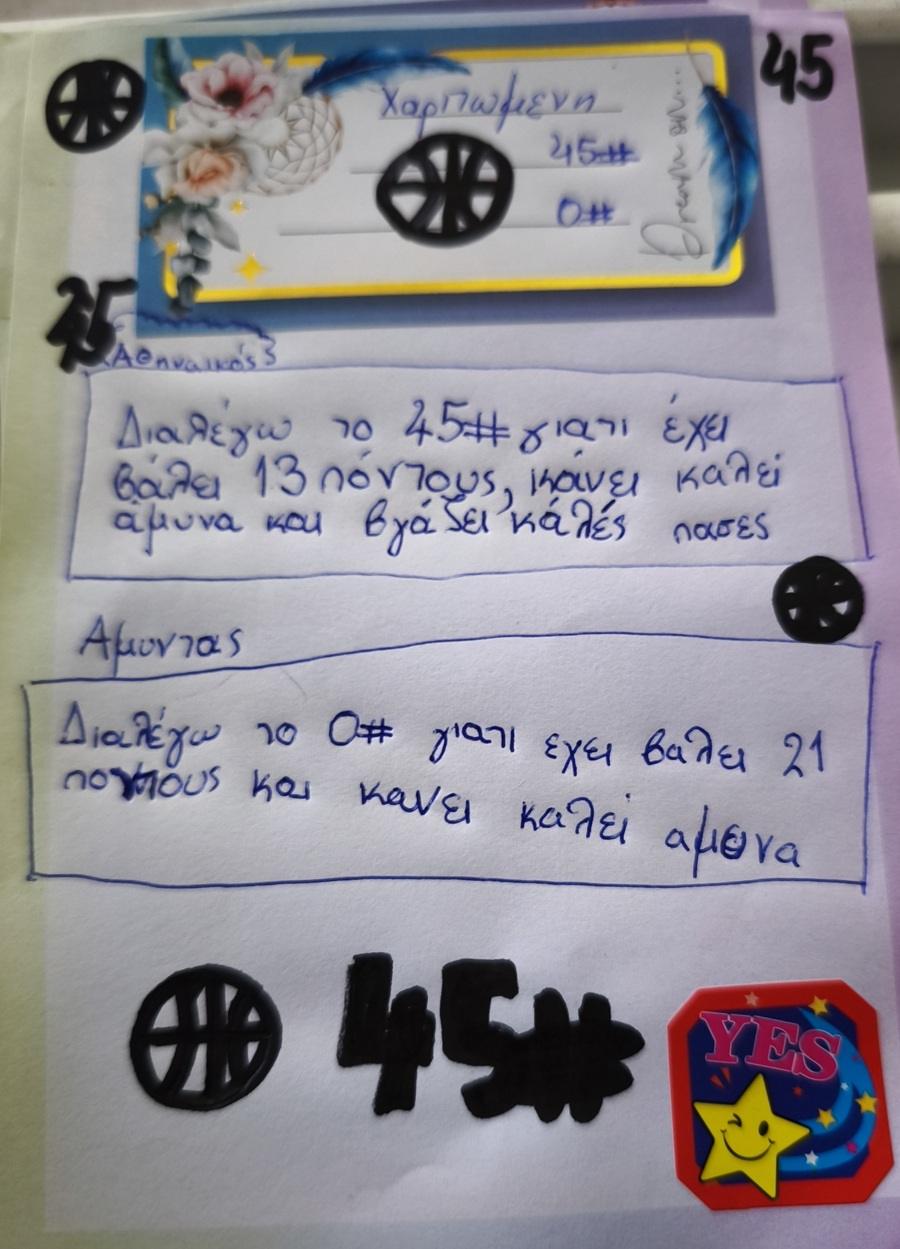 45
Χαριτωμενη
45#
0#
Dream on...
45
Αθηναικός
Διαλέγω το 45# γιατι έχει
βάλει 13 πόντους, κάνει καλεί
άμυνα και βγάζει κάλές πασες
Αμυντας
Διαλέγω το 0# γιατι εχει βαλει 21
ποντους και κανει καλεί αμυνα
45#
YES